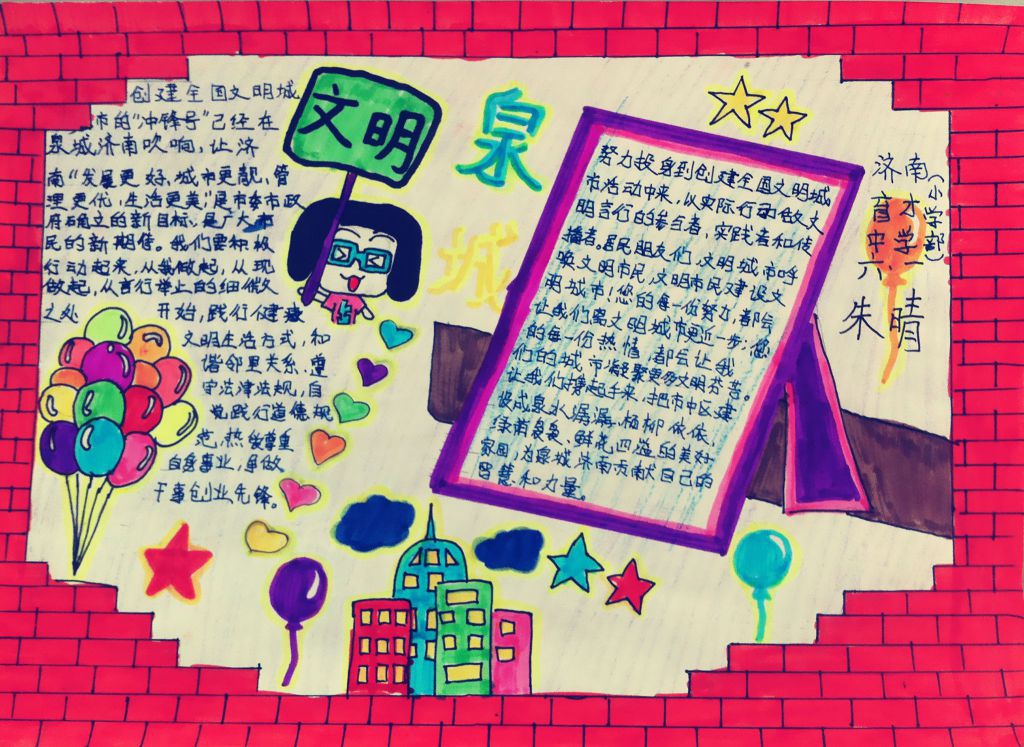 创建全国文明城
市的“冲锋号”已经在
泉城济南吹响，让济
南“发展更好，城市更靓，管
理更优，生活更美”是市委市政
府确立的新目标，是广大市
民的新期待。我们要积极
行动起来，从我做起，从现
做起，从言行举止的细微
之处 开始，践行健康
文明生活方式，和
谐邻里关系，遵
守法津法规，自
觉践行道德规
范，热爱尊重
自身事业，争做
干事创业先锋。
文明
泉
城
努力投身到创建全国文明城
市活动中来，以实际行动做文
明言行的参与者，实践者和传
播者。居民朋友们，文明城市呼
唤文明市民，文明市民建设文
明城市！您的每一份努力，都会
让我们离文明城市更近一步；您
的每一份热情，都会让我
们的城市凝聚更多文明芬芳。
让我们携起手来，把市中区建
设成泉水潺潺、杨柳依依、
泽葡袅袅、鲜花四溢的美好
家园，为泉城济南贡献自己的
智慧和力量。
济南
育才
中学
（小学部）
六
朱晴